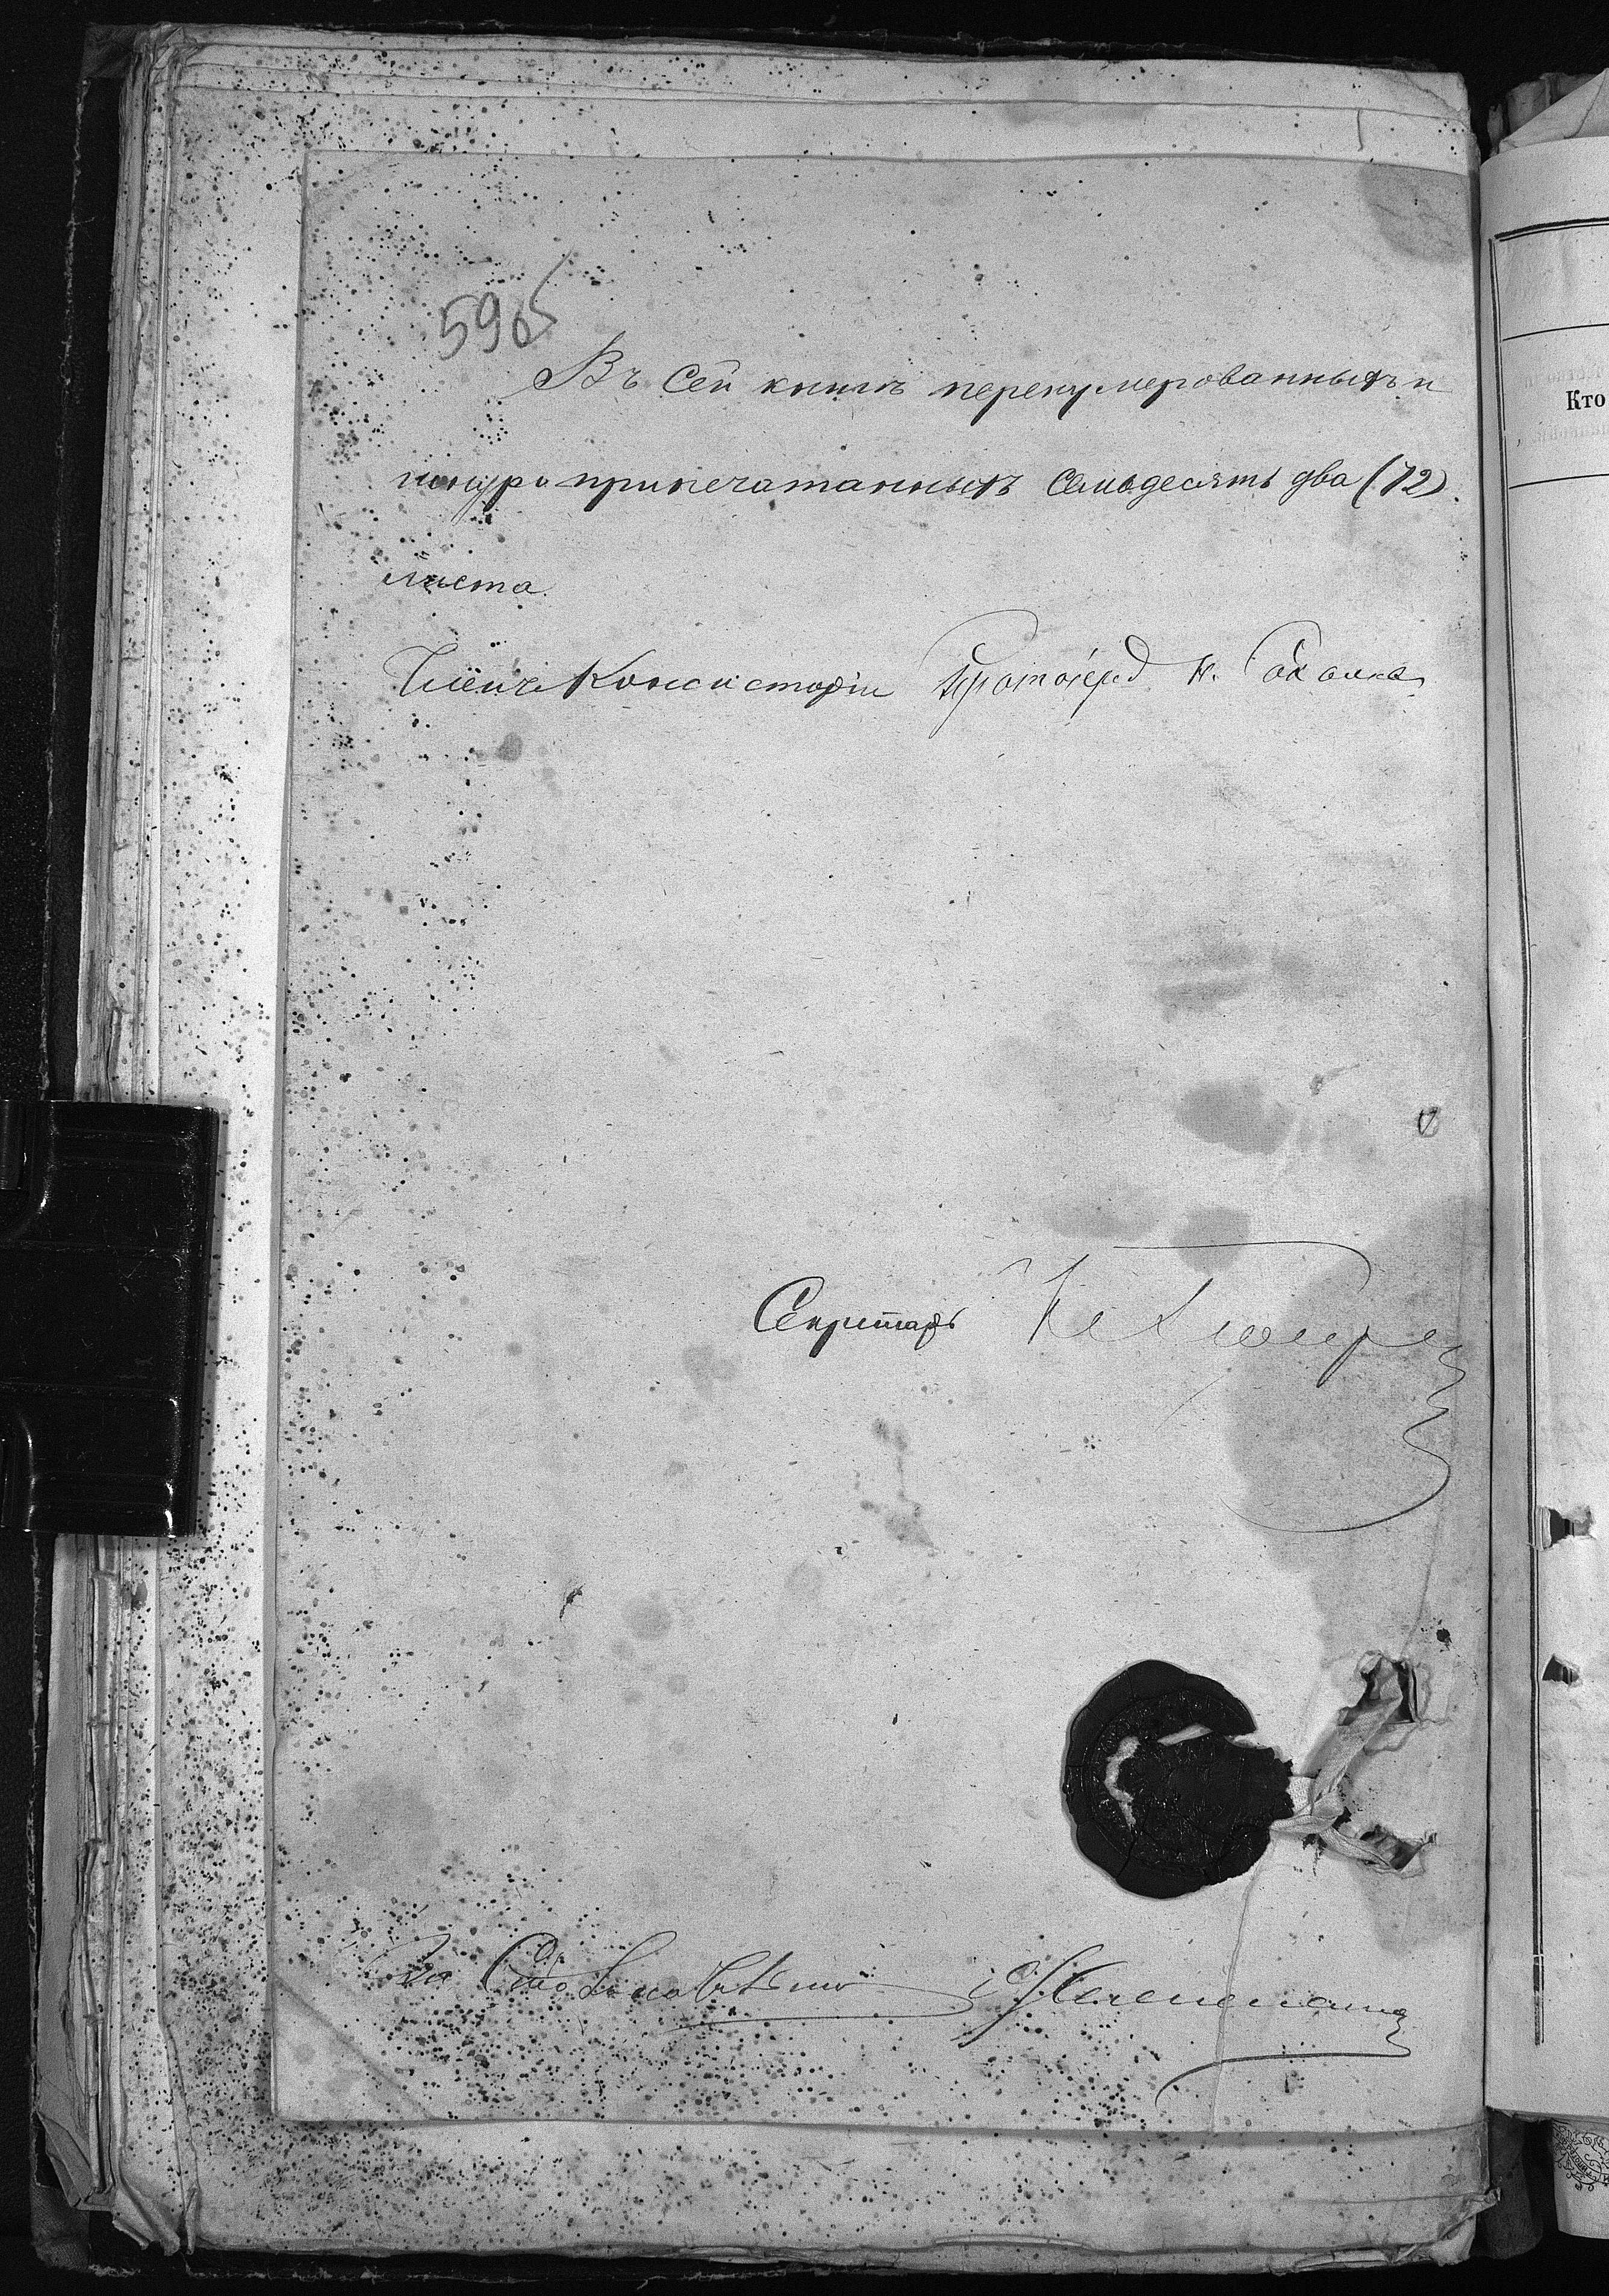 596
Въ сей книгѣ перенумерованныхъ и
шнуроприпечатанныхъ семьдесятъ два (72)
листа.
Членъ Консисторіи Протоіерей Н.
Секретарь
За Столоначальника
Кто